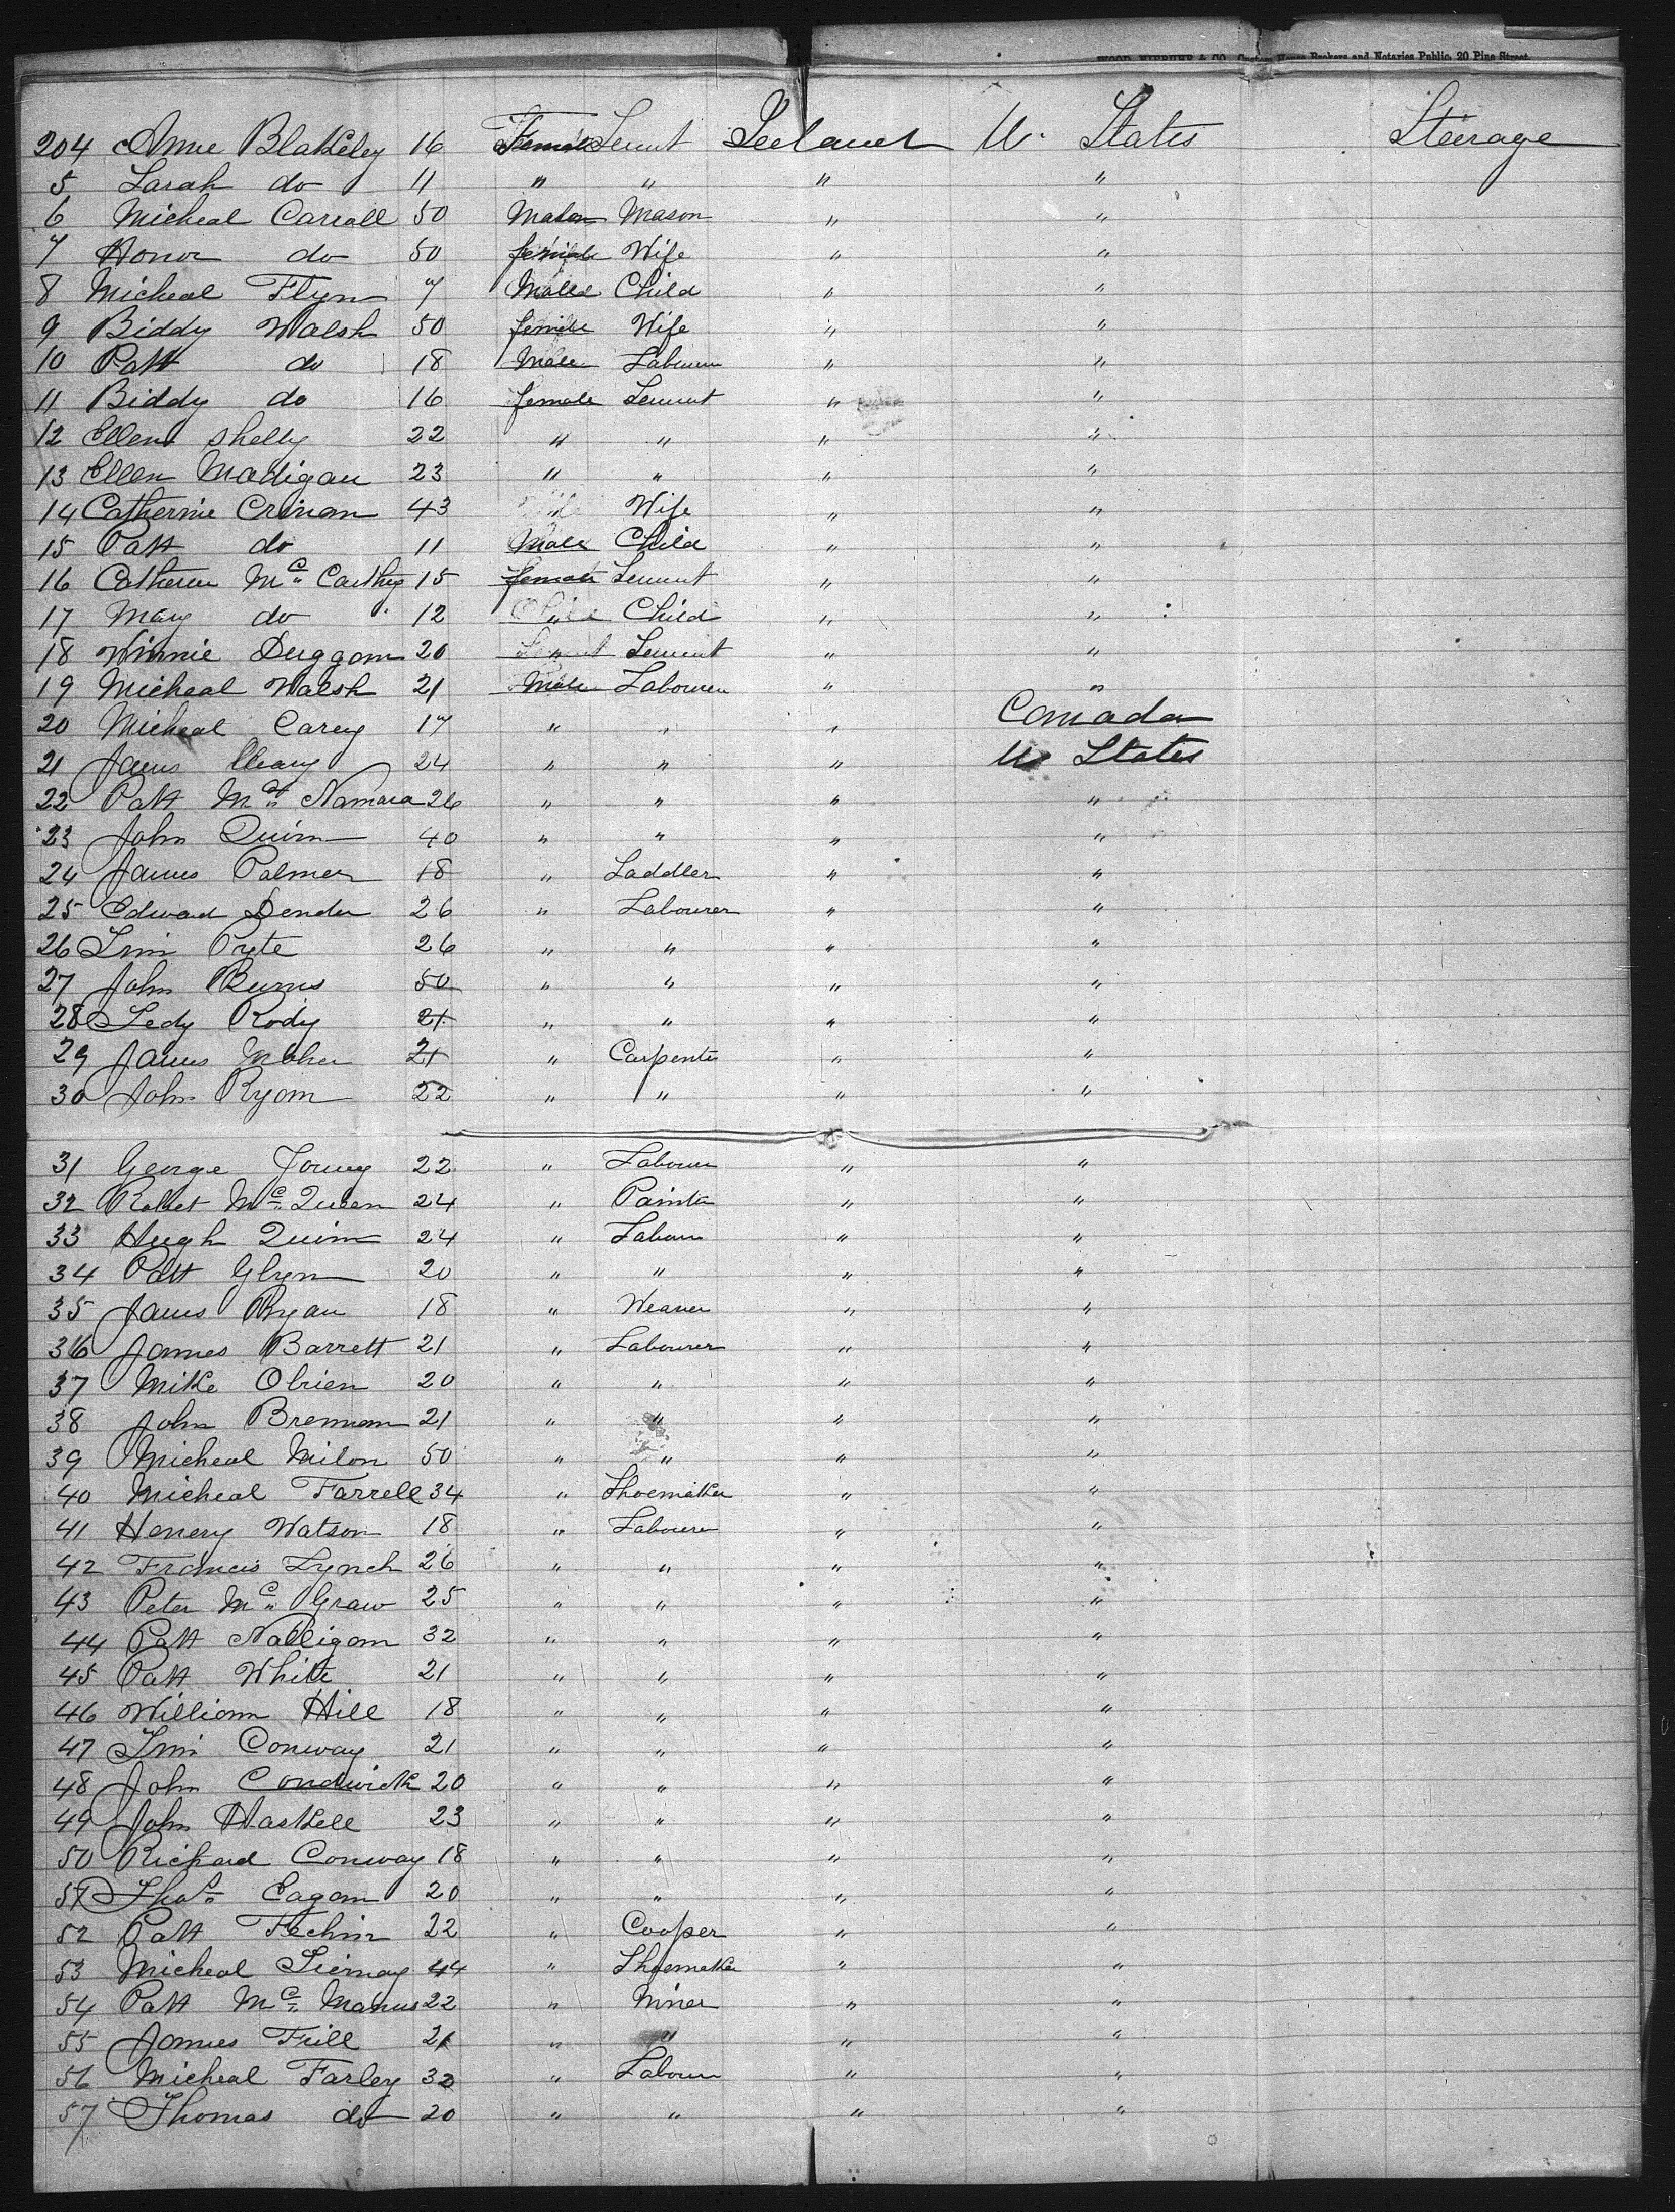 WOOD, NIEBUHR & CO. Custom House Brokers and Notaries Public, 20 Pine Street
204 Anne Blakeley 16 Female Servnt Ireland U. States Steirage
5 Sarah do 11 " " " "
6 Micheal Carroll 50 Mason " "
7 Honor do 50 female Wife " "
8 Micheal Flyn 7 Male Child " "
9 Biddy Walsh 50 female Wife " "
10 Patt do 18 Male Labourer " "
11 Biddy do 16 female Servnt " "
12 Ellen Shelly 22 " " " "
13 Ellen Madigan 23 " " " "
14 Catherine Crinan 43 " Wife " "
15 Patt do 11 Male Child " "
16 Catheren Mc Carthy 15 female Servnt " "
17 Mary do 12 " Child " "
18 Winnie Duggan 20 " Servnt " "
19 Micheal Walsh 21 Male Labourer " "
20 Micheal Carey 17 " " " Canada
21 James Cleary 24 " " " U States
22 Patt Mc Namara 26 " " " "
23 John Quinn 40 " " " "
24 James Palmer 18 " Saddler " "
25 Edward Dender 26 " Labourer " "
26 Tim Pyte 26 " " " "
27 John Burns 50 " " " "
28 Tedy Rody 21 " " " "
29 James Maher 21 " Carpenter " "
30 John Ryan 22 " " " "
31 George Young 22 " Labourer " "
32 Robert Mc Queen 24 " Painter " "
33 Hugh Quinn 24 " Labour " "
34 Patt Glynn 20 " " " "
35 James Ryan 18 " Weaver " "
36 James Barrett 21 " Labourer " "
37 Mike Obrien 20 " " " "
38 John Brennan 21 " " " "
39 Micheal Milon 50 " " " "
40 Micheal Farrell 34 " Shoemaker " "
41 Henery Watson 18 " Labourer " "
42 Francis Lynch 26 " " " "
43 Peter Mc Graw 25 " " " "
44 Patt Nalligan 32 " " " "
45 Patt White 21 " " " "
46 William Hill 18 " " " "
47 Tim Conway 21 " " " "
48 John Condwick 20 " " " "
49 John Haskell 23 " " " "
50 Richard Conway 18 " " " "
51 Thos Eagan 20 " " " "
52 Patt Fechin 22 " Cooper " "
53 Micheal Tiernay 44 " Shoemaker " "
54 Patt Mc Manus 22 " Miner " "
55 James Frill 21 " " " "
56 Micheal Farley 32 " Labour " "
57 Thomas do 20 " " " "